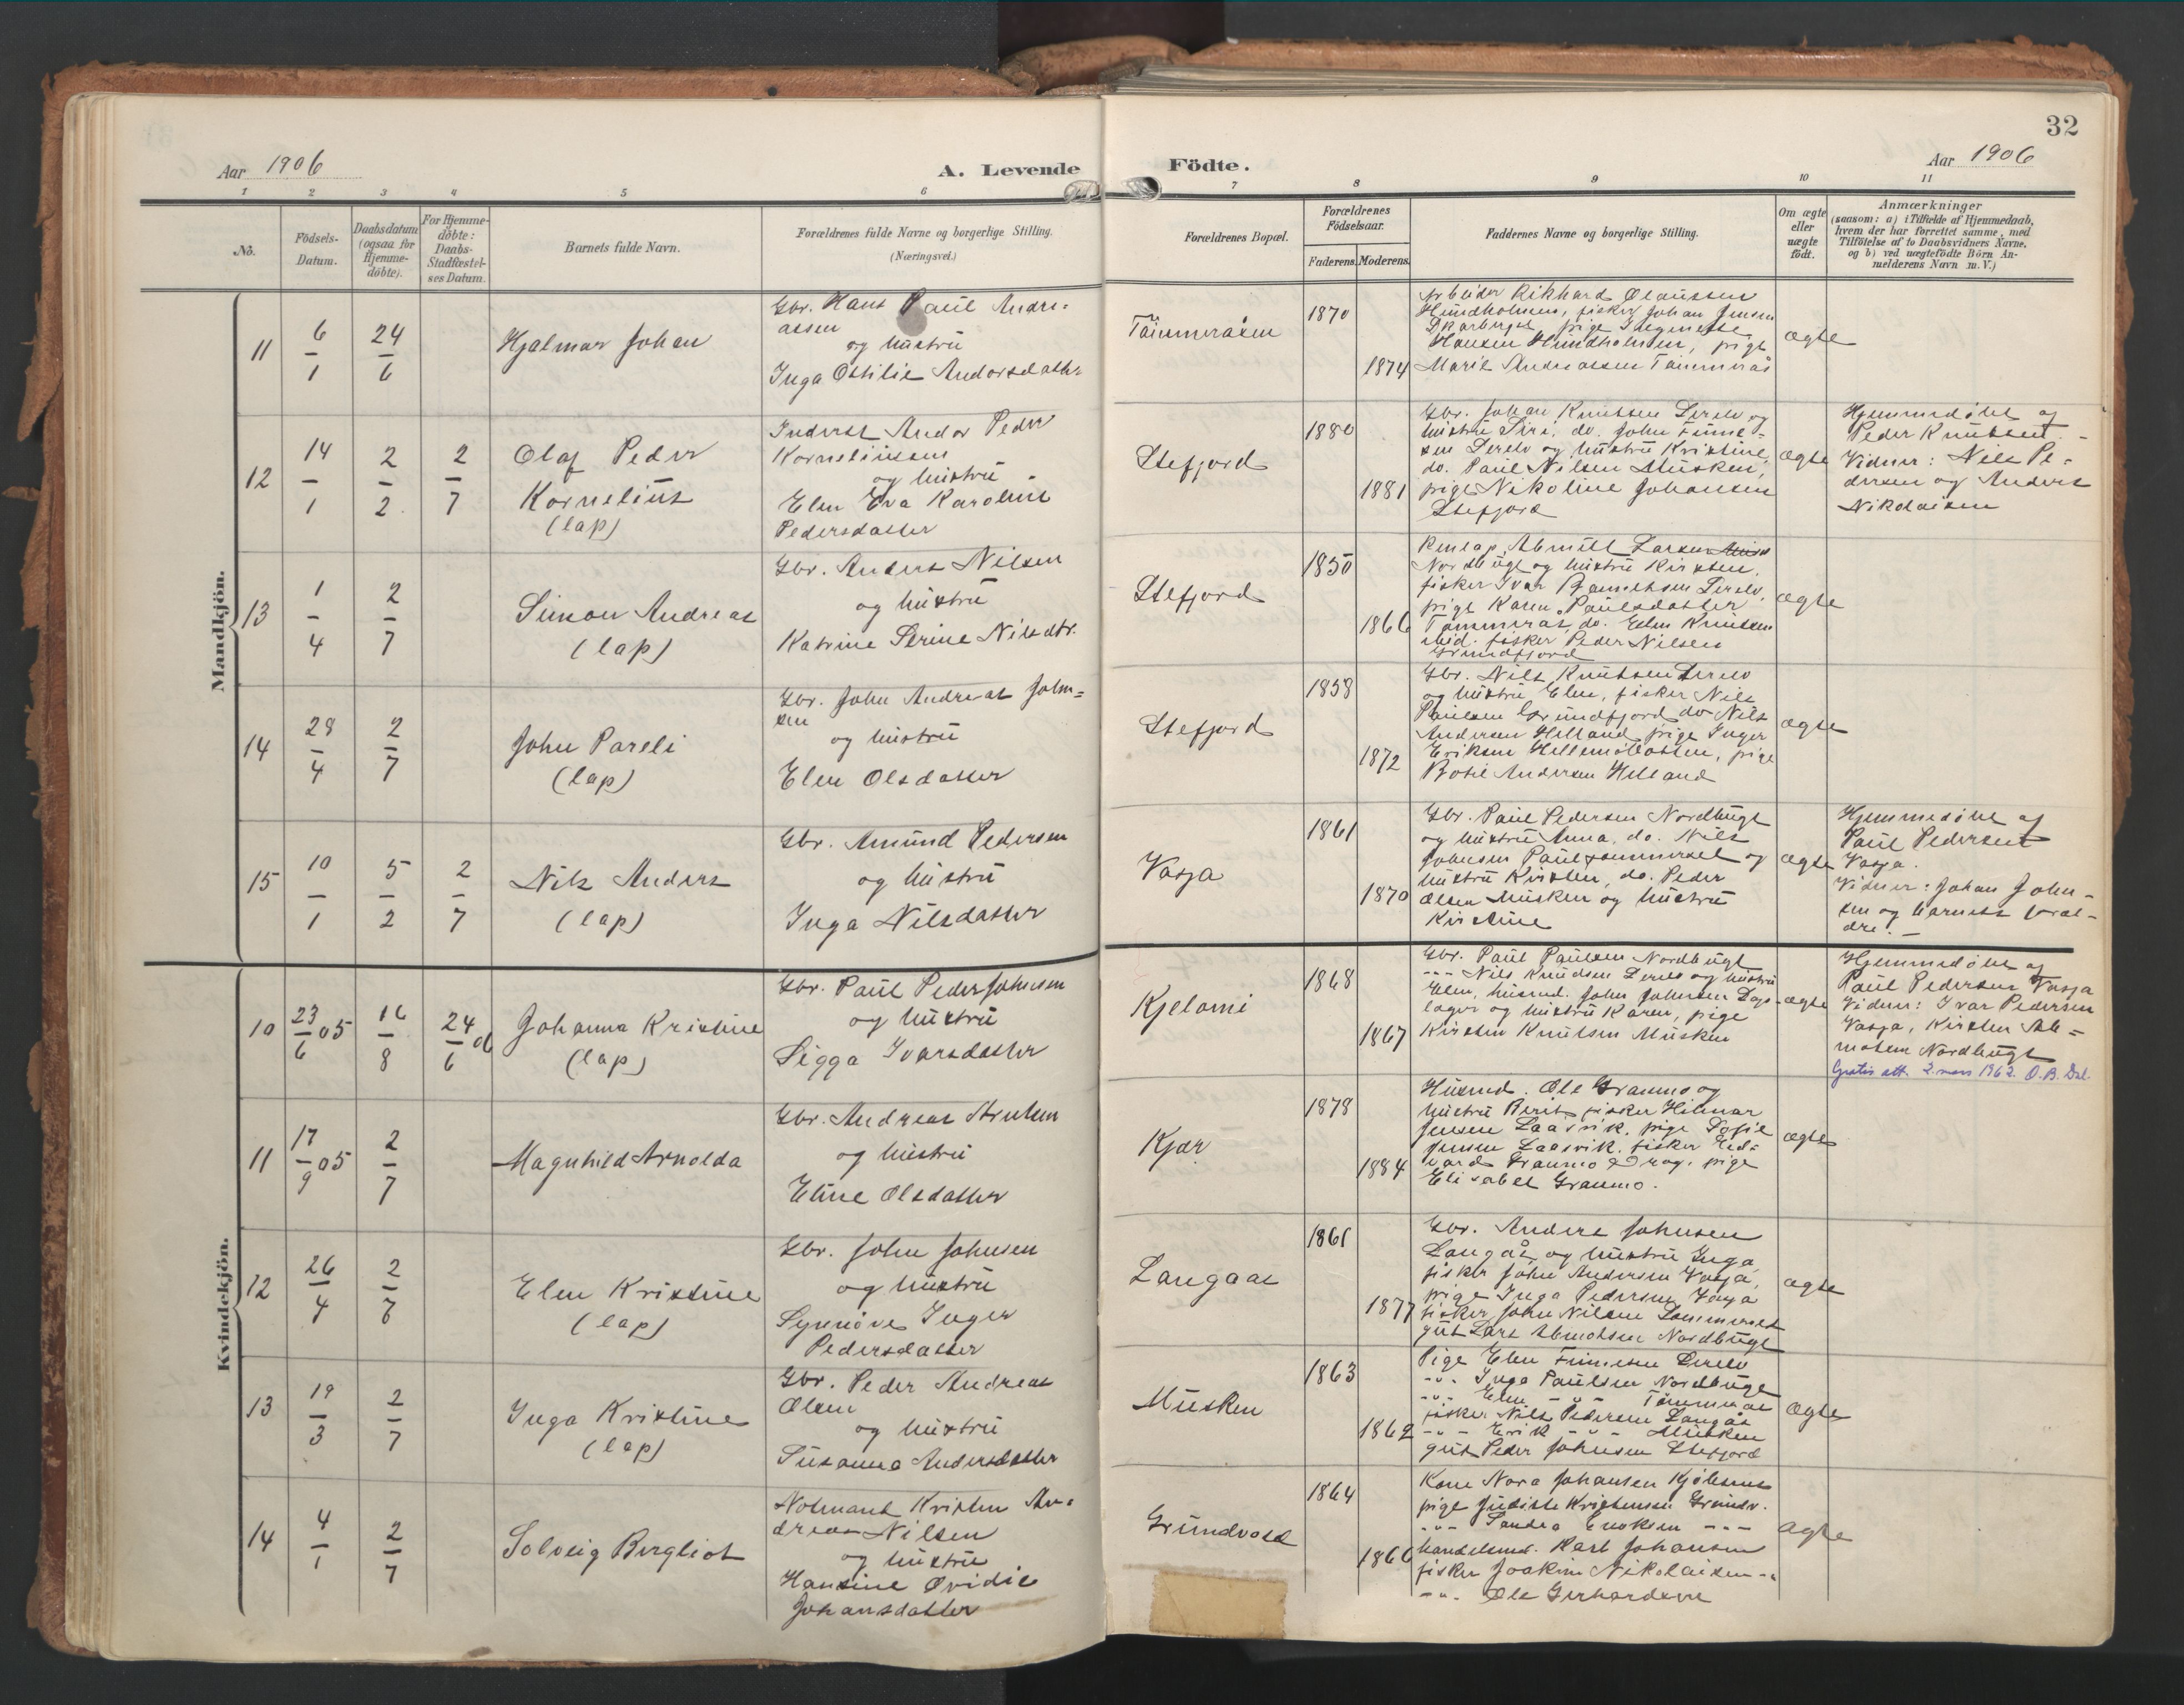 32
Aar 1906
A. Levende
Födte.
Aar 1906
1 2 3 4 5 6 7 8 9 10 11
No.
Födsels-
Datum.
Daabsdatum
(ogsaa for
Hjemme-
döbte).
For Hjemme-
döbte:
Daabs-
Stadfæstel-
ses Datum.
Barnets fulde Navn.
Forældrenes fulde Navne og borgerlige Stilling.
(Næringsvei.)
Forældrenes Bopæl.
Forældrenes
Födselsaar.
Faderens. Moderens.
Faddernes Navne og borgerlige Stilling.
Om ægte
eller
uægte
födt.
Anmærkninger
(saasom: a) i Tilfælde af Hjemmedaab,
hvem der har forrettet samme, med
Tilföielse af to Daabsvidners Navne,
og b) ved uægtefödte Börn An-
melderens Navn m. V.)
Mandkjön.
11
6
1
24
6
Hjalmar Johan
Gbr. Hans Paul Andre-
assen
og hustru
Inga Ottilie Andorsdatter
Tømmeraasen
1870
1874
Arbeider Rikhard Olaussen
Hundholmen, fisker Johan Jensen
Skarberget, pige
Hansen Hundholmen, pige
Marie Andreassen Tømmerås
ægte
12
14
1
2
2
2
7
Olaf Peder
Kornelius
(lap)
Inderst Andor Peder
Korneliussen
og hustru
Elen Eva Karoline
Pedersdatter
Stefjord
1880
1881
Gbr. Johan Knutsen Sirelv og
hustru Siri, do. John
sen Sirelv og hustru Kristine,
do. Paul Nilsen Musken,
pige Nikoline Johansen
Stefjord
ægte
Hjemmedøbt af
Peder Knutsen. -
Vidner: Nils Pe-
dersen og Anders
Nikolaisen
13
1
4
2
7
Simon Andreas
(lap)
Gbr. Anders Nilsen
og hustru
Katrine Serine Nilsdtr.
Stefjord
1850
1866
Larsen
Nordbugt og hustru Kirsten,
fisker Ivar
pige Karen Paulsdatter
Tømmerås, do. Elen Knutsen
ibid. fisker Peder Nilsen
Grundfjord
ægte
14
28
4
2
7
John Pareli
(lap)
Gbr. John Andreas John-
sen
og hustru
Elen Olsdatter
Stefjord
1858
1872
Gbr. Nils Knutsen
og hustru Elen, fisker Nils
Paulsen Grundfjord do Nils
Andersen Helland, pige Inger
Eriksen Hellemobotten, pige
Botil Andersen Helland
ægte
15
10
1
5
2
2
7
Nils Anders
(lap)
Gbr. Amund Pedersen
og hustru
Inga Nilsdatter
Vasja
1861
1870
Gbr. Paul Pedersen Nordbugt
og hustru Anna, do. Nils
Johnsen og
hustru Kirsten, do. Peder
Olsen Musken og hustru
Kirstine
ægte
Hjemmedøbt af
Paul Pedersen
Vasja.
Vidner: Johan John-
sen og barnets foræl-
dre. -
Kvindekjön.
10
23
6 05
16
8
24
6 06
Johanna Kristine
(lap)
Gbr. Paul Peder Johnsen
og hustru
Sigga Ivarsdatter
Kjelomi
1868
1867
Gbr. Paul Paulsen Nordbugt
-"- Nils Knudsen og hustru
Elen, husmd. John Johnsen
og hustru Karen, pige
Kirsten Knutsen Musken
ægte
Hjemmedøbt af
Paul Pedersen Vasja
Vidner: Ivar Pedersen
Vasja, Kirsten Ab-
motsen Nordbugt
Gratis att. 2. mars 1962. O.B. Dal.
11
17
9 05
2
7
Magnhild Arnolda
Gbr. Andreas Arntsen
og hustru
Eline Olsdatter
Kjær
1878
1884
Husmd. Ole Granmo og
hustru Berit, fisker Hilmar
Jensen Laasvik, pige Sofie
Jensen Laasvik, fisker Ed-
vard Granmo Drag, pige
Elisabet Granmo.
ægte
12
26
4
2
8
Elen Kristine
(lap)
Gbr. John Johnsen
og hustru
Synnøve Inger
Pedersdatter
Langaas
1861
1877
Gbr. Anders Johnsen
Langås og hustru Inga
fisker John Andersen Vasja,
pige Inga Pedersen Vasja
fisker John Nilsen
gut Lars Abmotsen Nordbugt
ægte
13
19
3
2
7
Inga Kristine
(lap)
Gbr. Peder Andreas
Olsen
og hustru
Susanna Andersdatter
Musken
1863
1862
Pige Elen
-"- Inga Paulsen Nordbugt
-"- Elen -"- Tømmerås
fisker Nils Pedersen Langås
-"- Erik -"- Musken
gut Peder Johnsen Stefjord
ægte
14
4
1
2
7
Solveig Bergliot
Notmand Kristen An-
dreas Nilsen
og hustru
Hansine Ovidie
Johansdatter
Grundvold
1864
1866
Kone Nora Johansen Kjøbsnes
pige Judithe Kristensen Grundv.
-"- Sandra Enoksen -"-
handelsmd. Karl Johansen
fisker Joakim Nikolaisen -"-
-"- Ole Gerhardsen
ægte